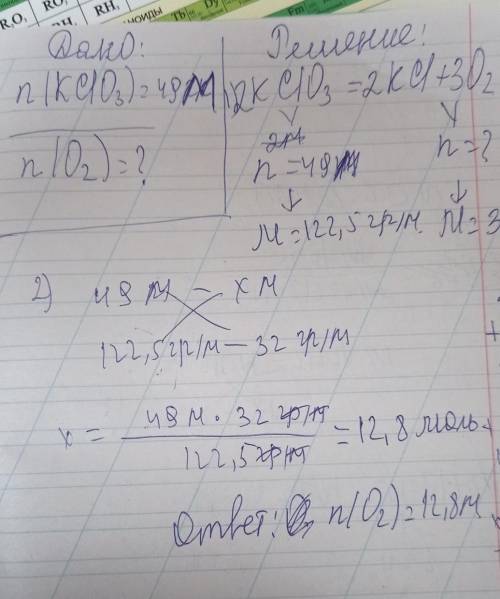 R₂O₃ RO₂ RH₄
Tb Dy Fm
Дано:
n(KClO₃)=49м
n(O₂)=?
Решение:
2KClO₃=2KCl+3O₂
n=49м n=?
↓ ↓
M=122,5гр/м. M=3
2) 49 м — x м
122,5гр/м — 32 гр/м
x = 49м · 32 гр/м / 122,5гр/м = 12,8 моль
Ответ: n(O₂)=12,8м